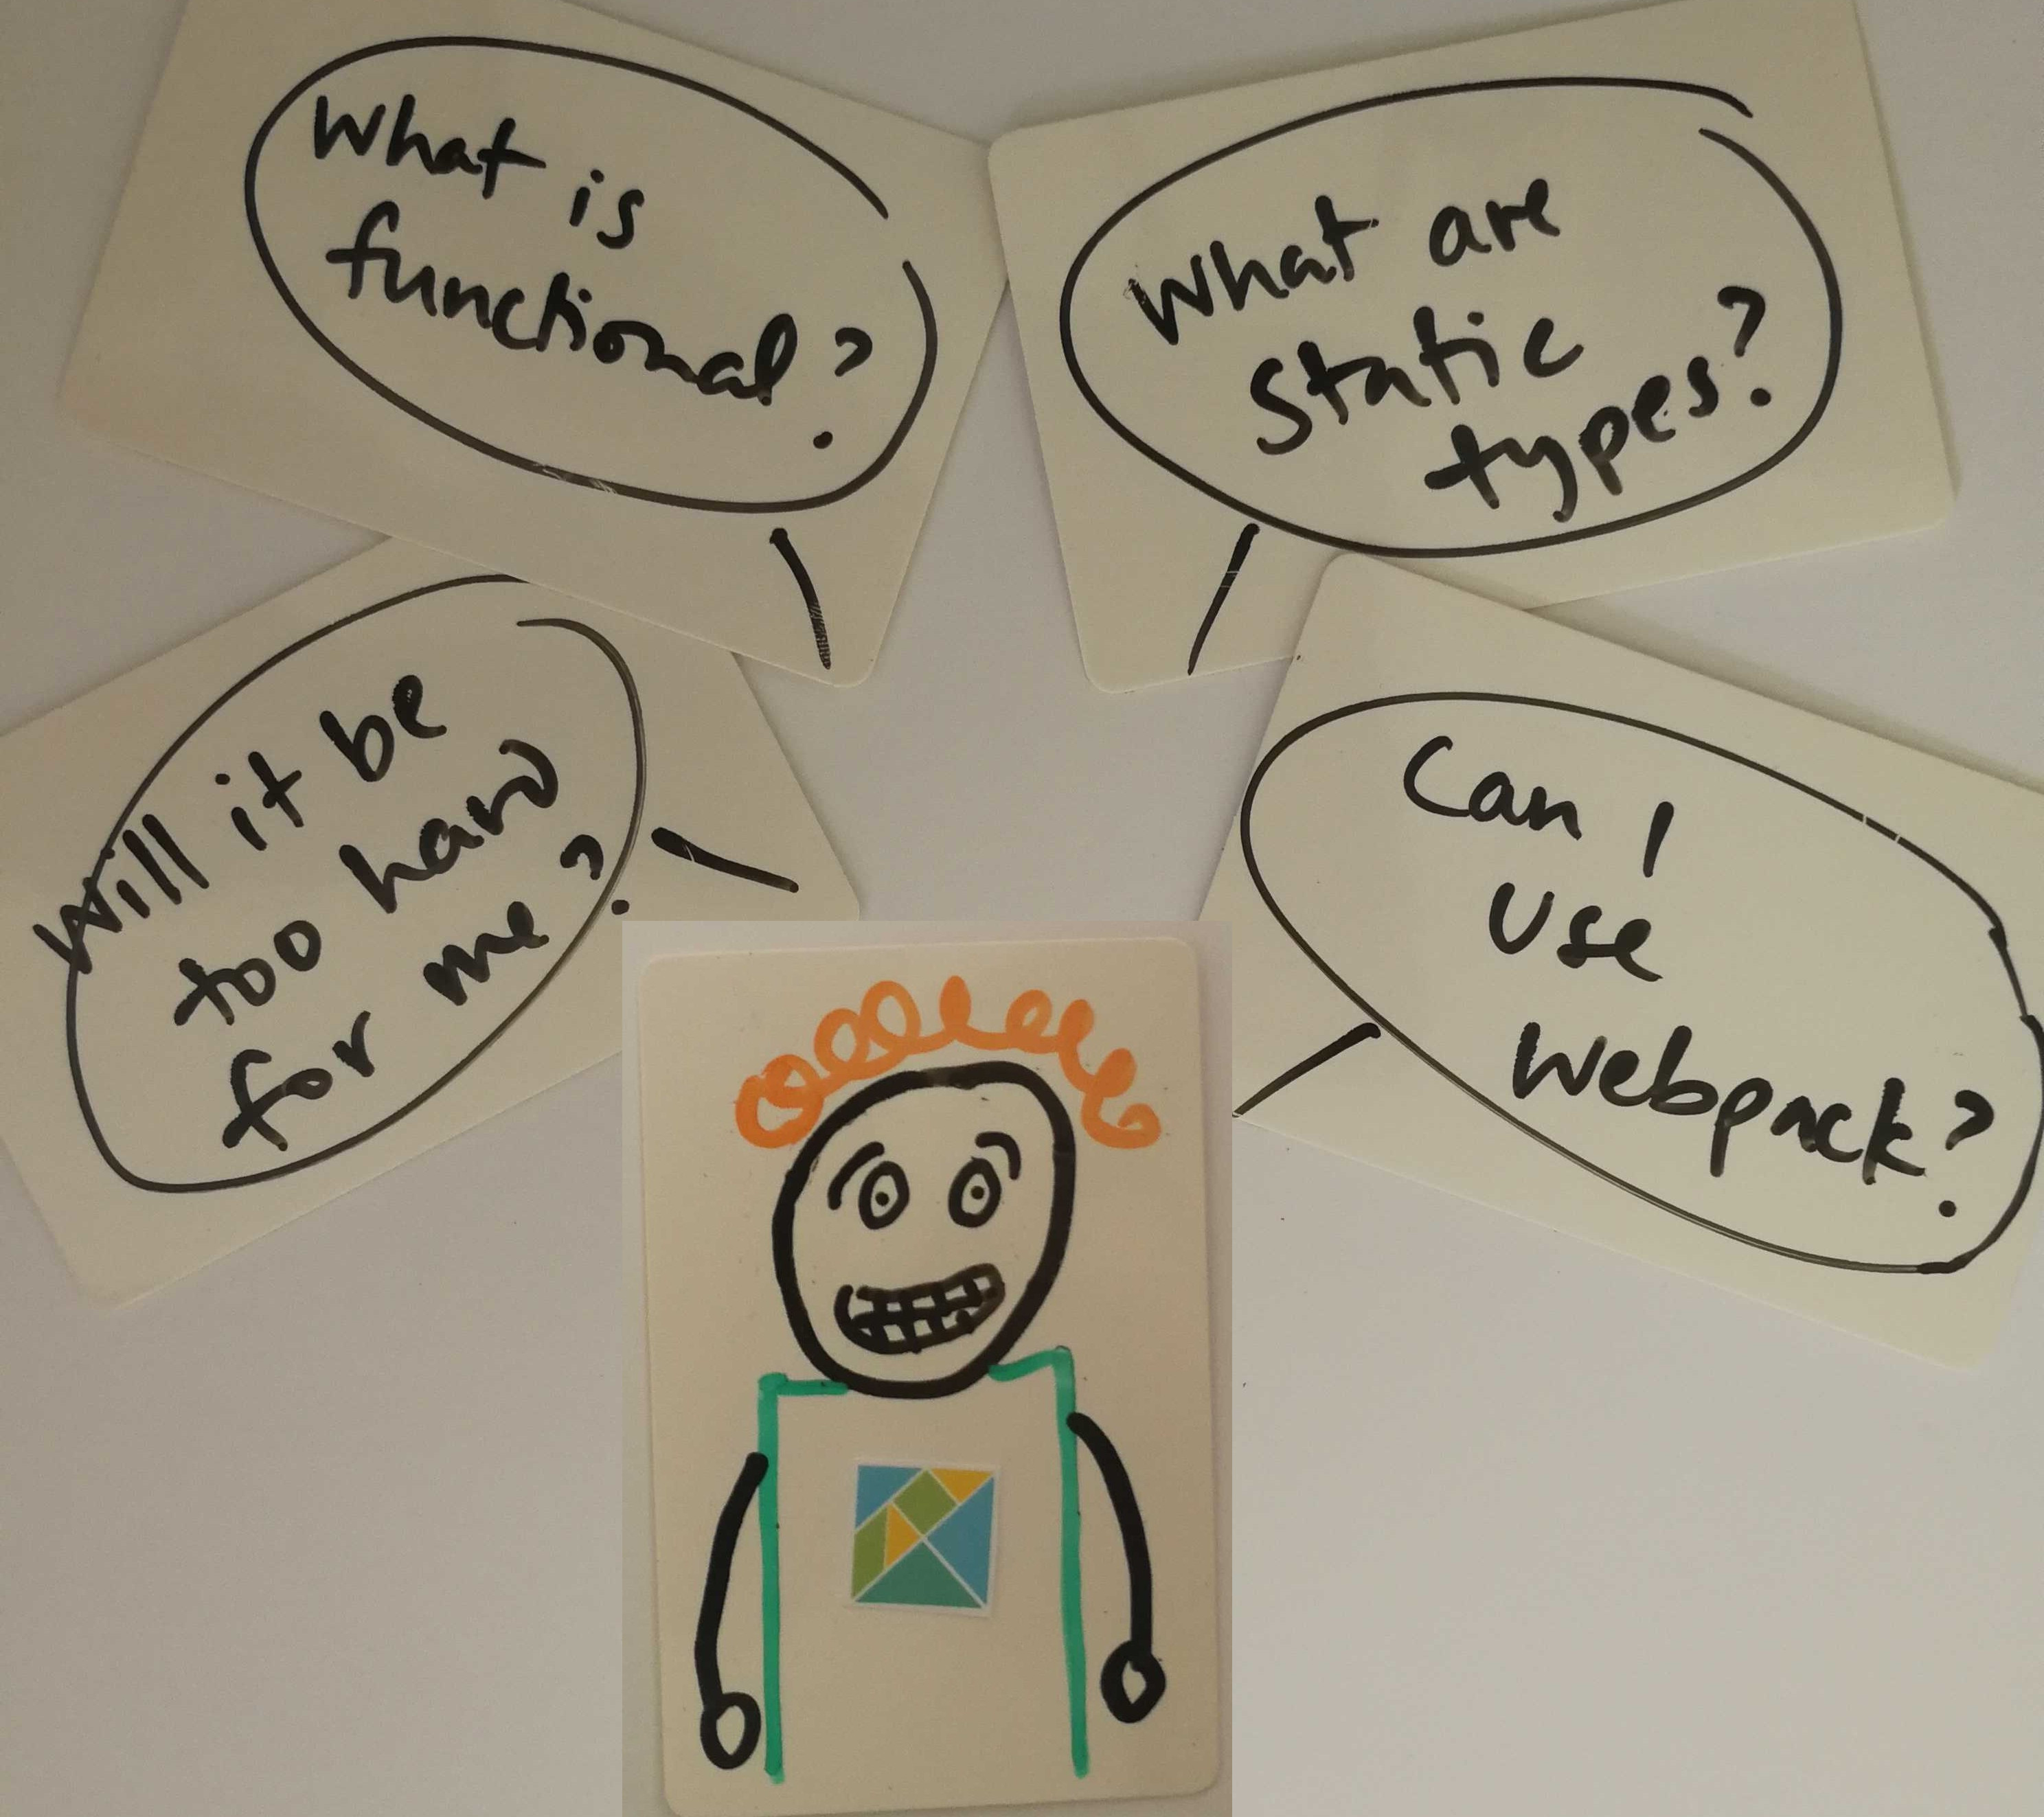 What is
functional?
What are
Static
types?
Will it be
too hard
for me?
Can I
Use
Webpack?